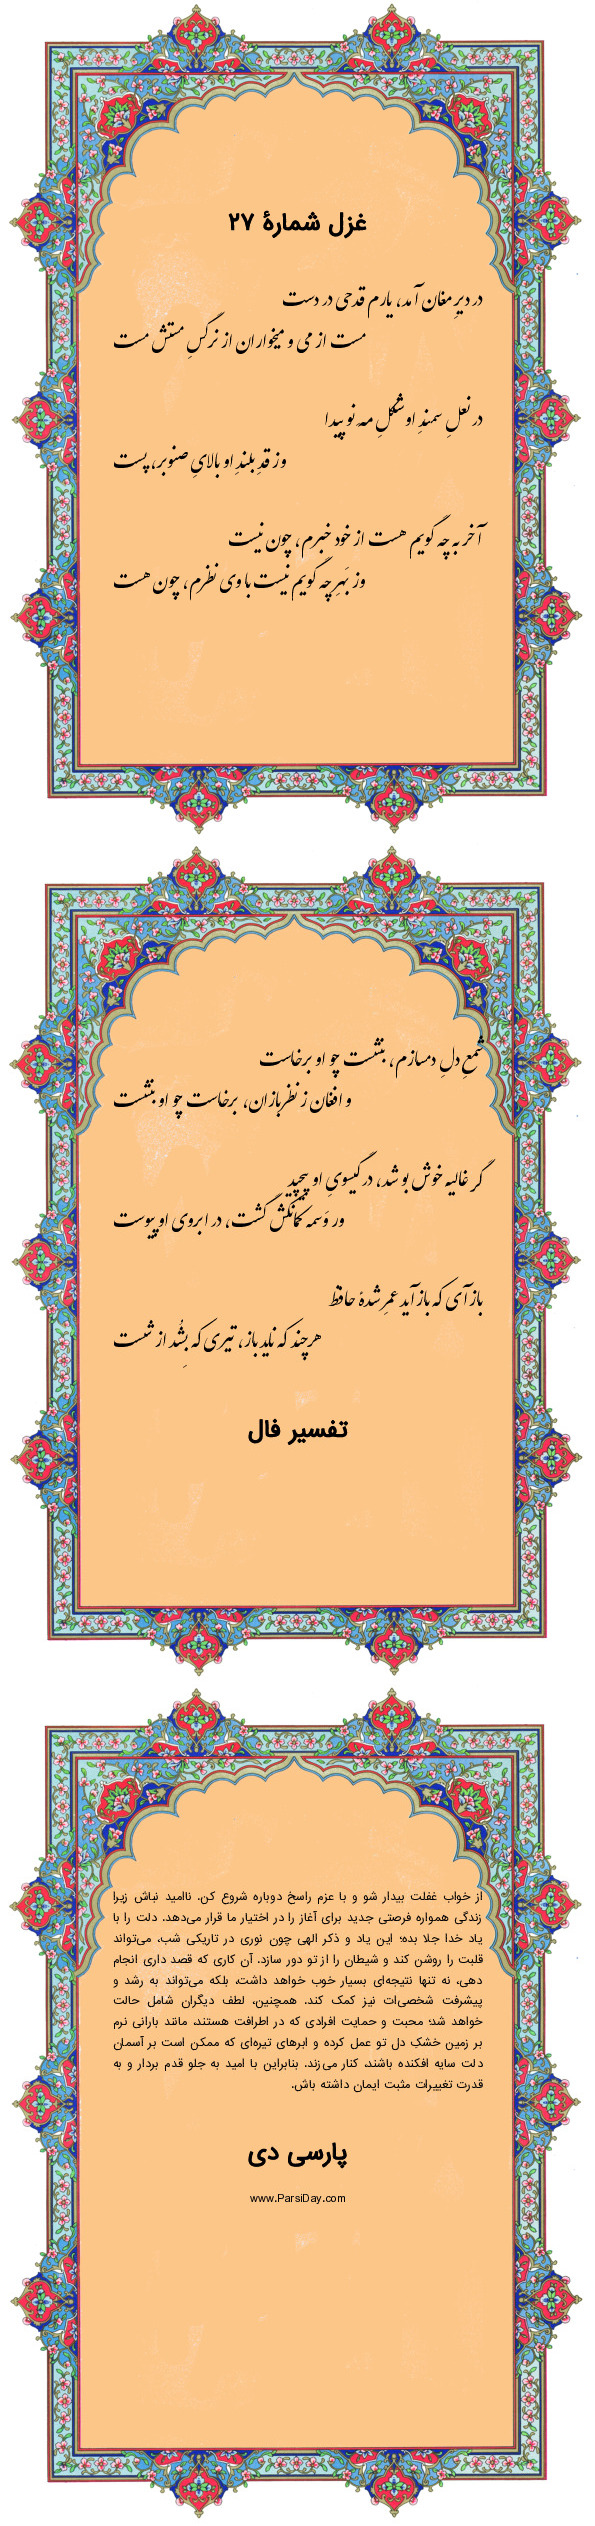 غزل شمارهٔ ۲۷
در دیرِ مغان آمد، یارم قدحی در دست
مست از می و میخواران از نرگسِ مستش مست
در نعلِ سمندِ او شکلِ مه نو پیدا
وز قدِ بلندِ او بالایِ صنوبر، پست
آخر به چه گویم هست از خود خبرم، چون نیست
وز بَهرِ چه گویم نیست با وی نظرم، چون هست
شمعِ دلِ دمسازم، بنشست چو او برخاست
و افغان ز نظربازان، برخاست چو او بنشست
گر غالیه خوش بو شد، در گیسویِ او پیچید
ور وَسمه کمانکش گشت، در ابروی او پیوست
بازآی که بازآید عمرِ شدهٔ حافظ
هرچند که ناید باز، تیری که بِشُد از شست
تفسیر فال
از خواب غفلت بیدار شو و با عزم راسخ دوباره شروع کن. ناامید نباش زیرا
زندگی همواره فرصتی جدید برای آغاز را در اختیار ما قرار می‌دهد. دلت را با
یاد خدا جلا بده؛ این یاد و ذکر الهی چون نوری در تاریکی شب، می‌تواند
قلبت را روشن کند و شیطان را از تو دور سازد. آن کاری که قصد داری انجام
دهی، نه تنها نتیجه‌ای بسیار خوب خواهد داشت، بلکه می‌تواند به رشد و
پیشرفت شخصی‌ات نیز کمک کند. همچنین، لطف دیگران شامل حالت
خواهد شد؛ محبت و حمایت افرادی که در اطرافت هستند، مانند بارانی نرم
بر زمین خشکِ دل تو عمل کرده و ابرهای تیره‌ای که ممکن است بر آسمان
دلت سایه افکنده باشند، کنار می‌زند. بنابراین با امید به جلو قدم بردار و به
قدرت تغییرات مثبت ایمان داشته باش.
پارسی دی
www.ParsiDay.com